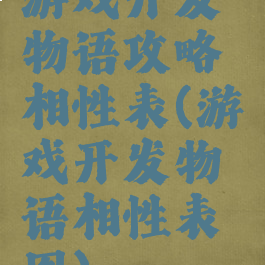 游戏开发
物语攻略
相性表(游
戏开发物
语相性表
图)